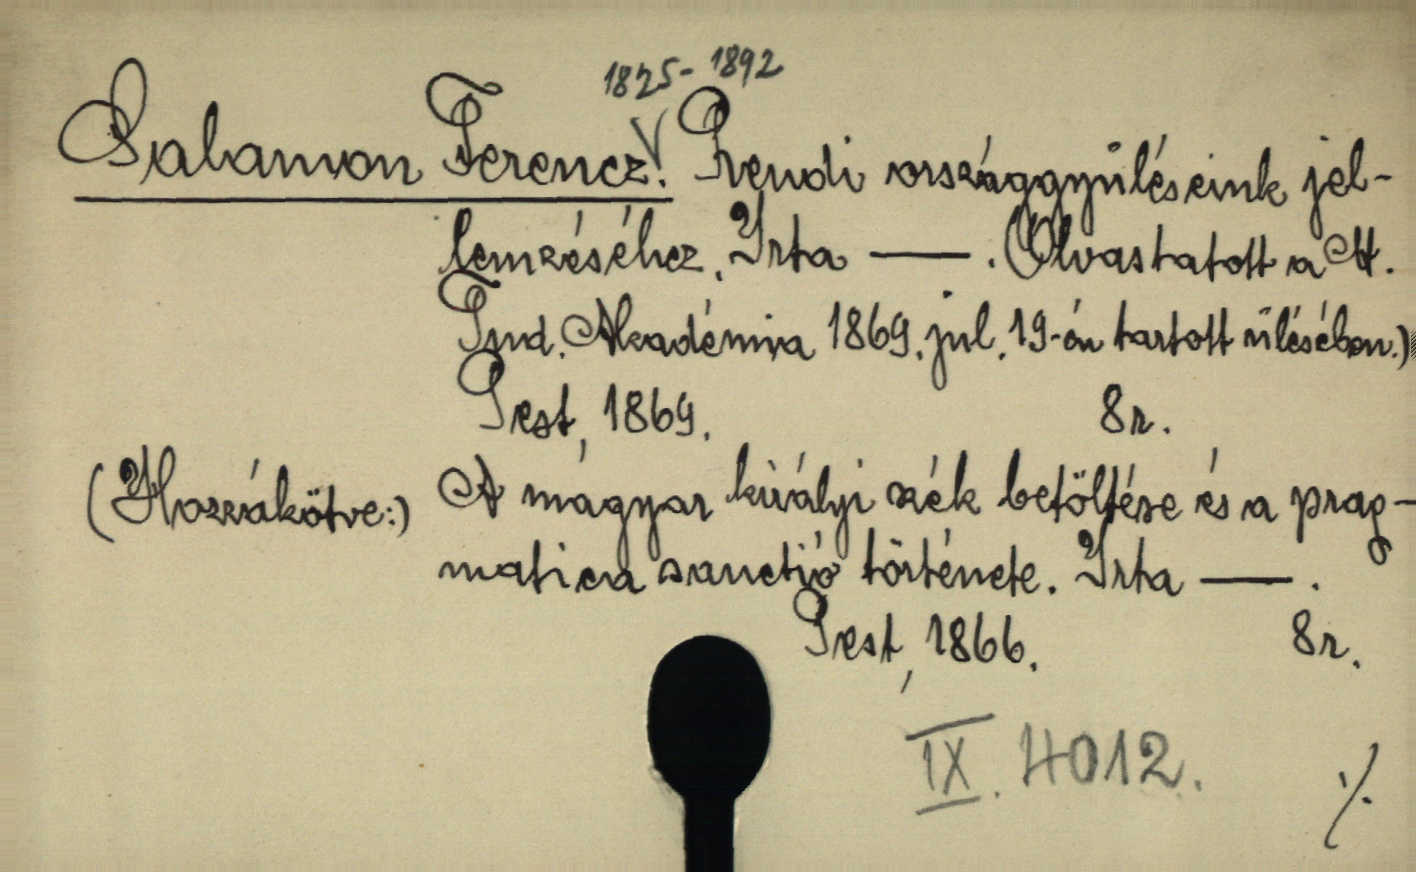 1825-1892
Salamon Ferencz: Rendi országgyüléseink jel-
lemzéséhez. Irta —. (Olvastatott a M.
Tud. Akadémia 1869. jul. 19-én tartott ülésében.)
Pest, 1869. 8r.
(Hozzákötve:) A magyar királyi szék betöltése és a prag-
matica sanctió története. Irta —.
Pest, 1866. 8r.
IX. 4012.